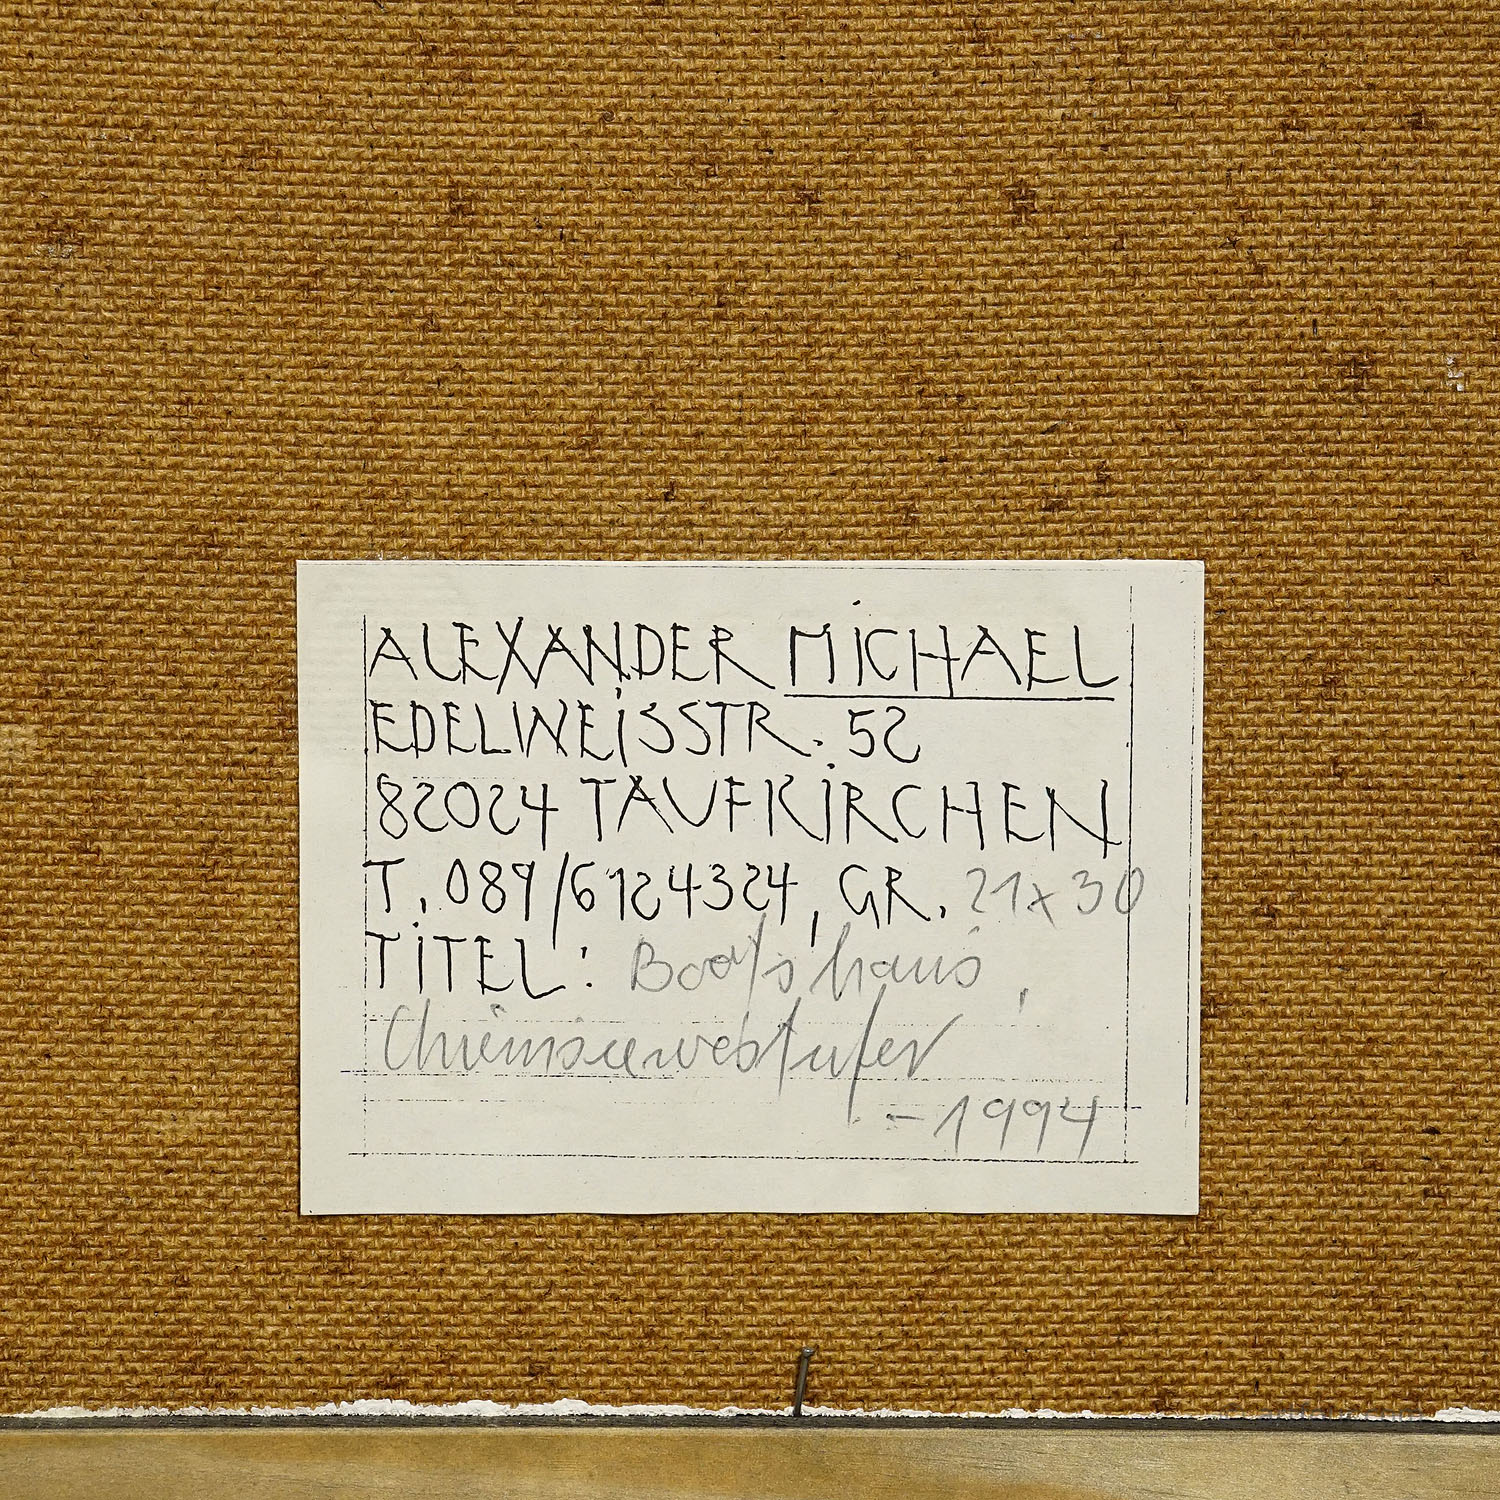 ALEXANDER MiCHAEL
EDELWEiSSTR. 52
82024 TAUFKiRCHEN
T. 089/6124324, GR. 21x30
TiTEL: Bootshaus,
Chiemseewestufer
- 1994